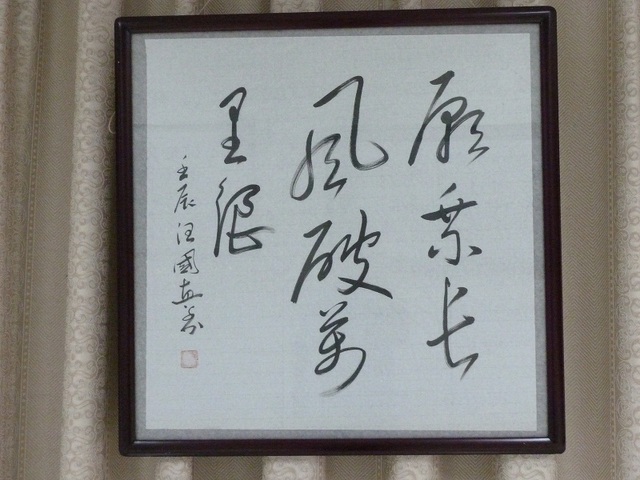 愿乘长
风破万
里浪
壬辰汪國真书